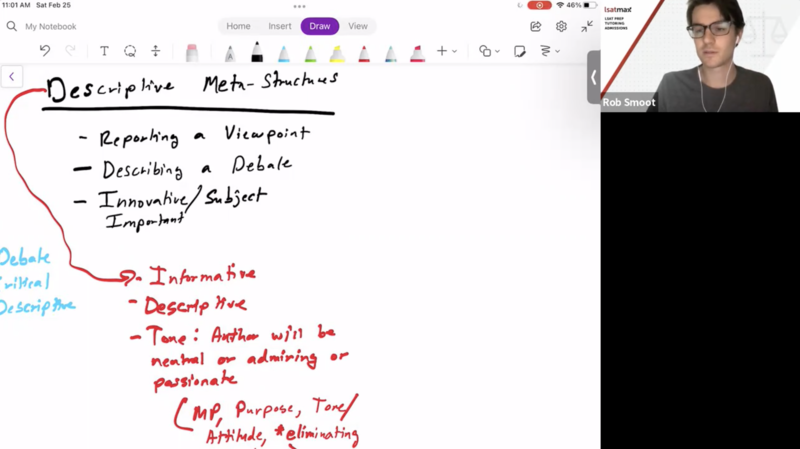 11:01 AM Sat Feb 25
46%
My Notebook
Home Insert Draw View
Descriptive Meta-Structures
- Reporting a Viewpoint
- Describing a Debate
- Innovative/Subject
Important
- Informative
- Descriptive
- Tone: Author will be
neutral or admiring or
passionate
(MP, Purpose, Tone/
Attitude, *eliminating
Debate
Critical
Descriptive
lsatmax
LSAT PREP
TUTORING
ADMISSIONS
Rob Smoot